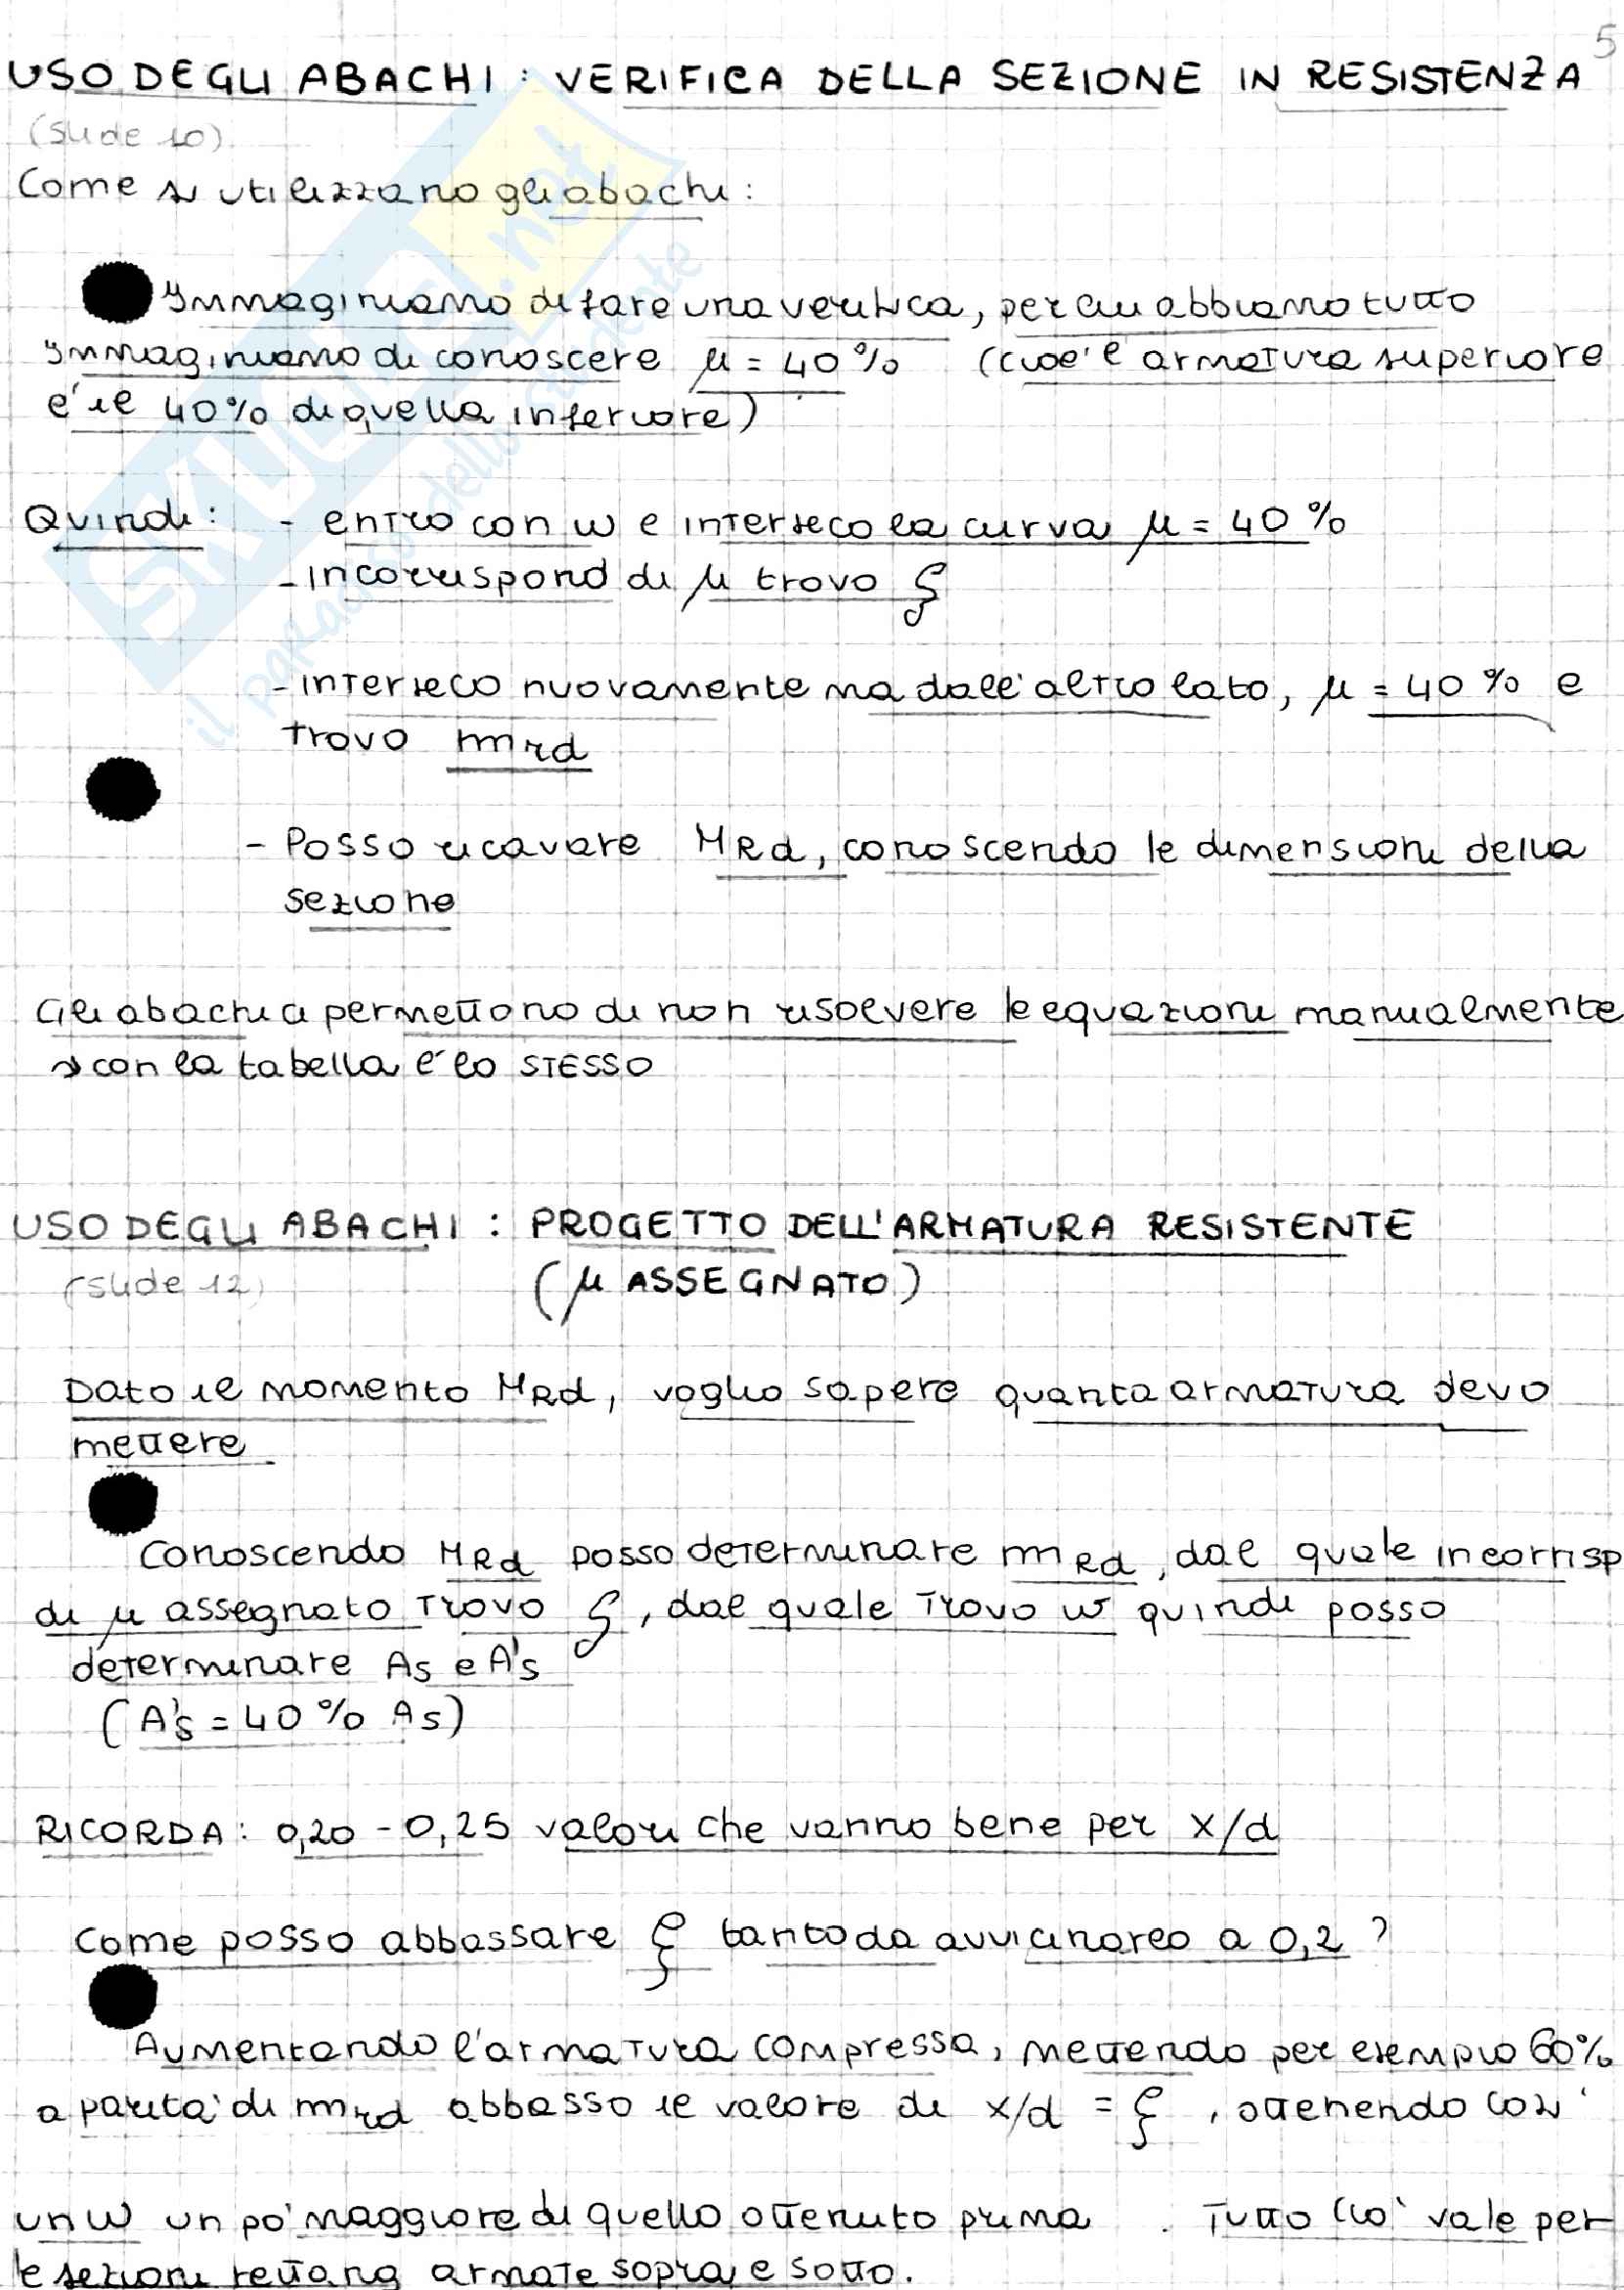 5
USO DEGLI ABACHI: VERIFICA DELLA SEZIONE IN RESISTENZA
(slide 10)
Come si utilizzano gli abachi:
Immaginiamo di fare una verifica, per cui abbiamo tutto
Immaginiamo di conoscere μ = 40% (cioè l'armatura superiore
è il 40% di quella inferiore)
Quindi: - entro con w e interseco la curva μ = 40%
- in corrispond di μ trovo ξ
- interseco nuovamente ma dall'altro lato, μ = 40% e
trovo mrd
- Posso ricavare MRd, conoscendo le dimensioni della
sezione
Gli abachi ci permettono di non risolvere le equazioni manualmente
→ con la tabella è lo STESSO
USO DEGLI ABACHI: PROGETTO DELL'ARMATURA RESISTENTE
(slide 12) (μ ASSEGNATO)
Dato il momento MRd, voglio sapere quanta armatura devo
mettere
Conoscendo MRd posso determinare mRd, dal quale in corrisp
di μ assegnato trovo ξ, dal quale trovo w quindi posso
determinare As e A's
(A's = 40% As)
RICORDA: 0,20 - 0,25 valori che vanno bene per x/d
Come posso abbassare ξ tanto da avvicinarlo a 0,2?
Aumentando l'armatura compressa, mettendo per esempio 60%
a parità di mrd abbasso il valore di x/d = ξ, ottenendo così
un w un po' maggiore di quello ottenuto prima. Tutto ciò vale per
le sezioni rettang armate sopra e sotto.
SKUOLA.net
il paradiso dello studente